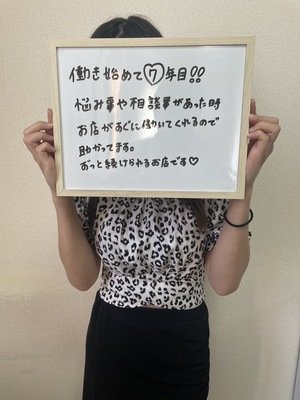 働き始めて⑦年目!!
悩み事や相談事があった時
お店がすぐに働いてくれるので
助かってます。
ずっと続けられるお店です♡